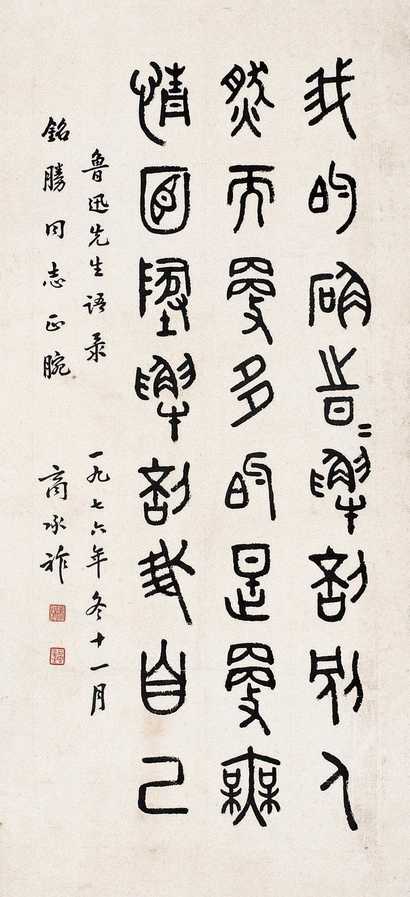 我的确时时解剖别人
然而更多的是更無
情面地解剖我自己
魯迅先生语录 一九七六年冬十一月
銘勝同志正腕 商承祚